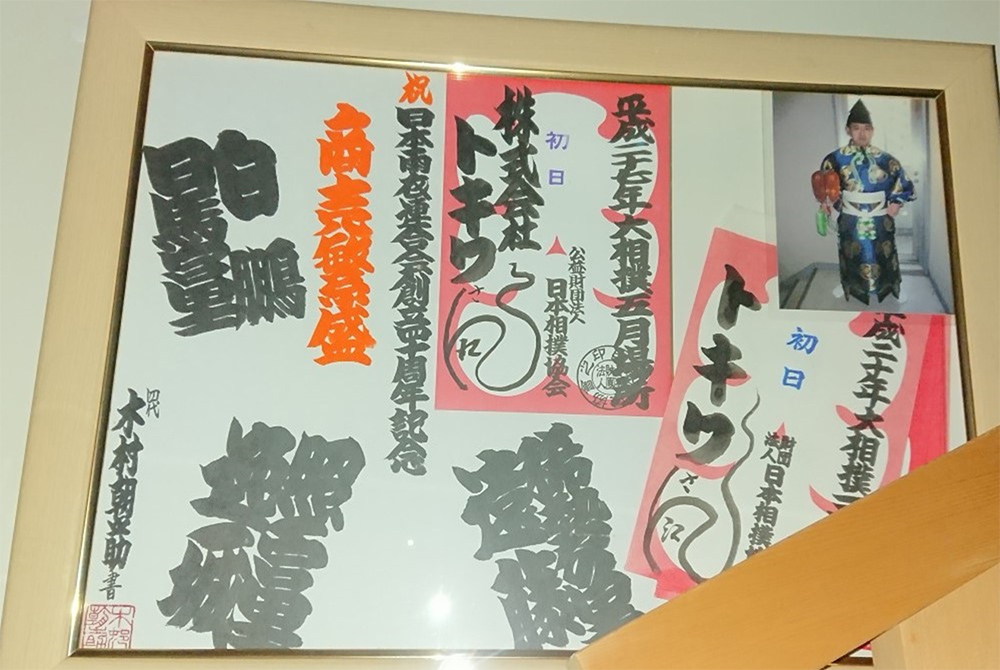 平成二十七年大相撲五月場所
公益財団法人
日本相撲協会
初日
株式会社
トキワ
さ江
成二十年大相撲
財団法人
日本相撲
初日
トキワ
さ江
祝
日本雨衣連合会創立五十周年記念
商売繁盛
白鵬
日馬富士
木村朝之助書